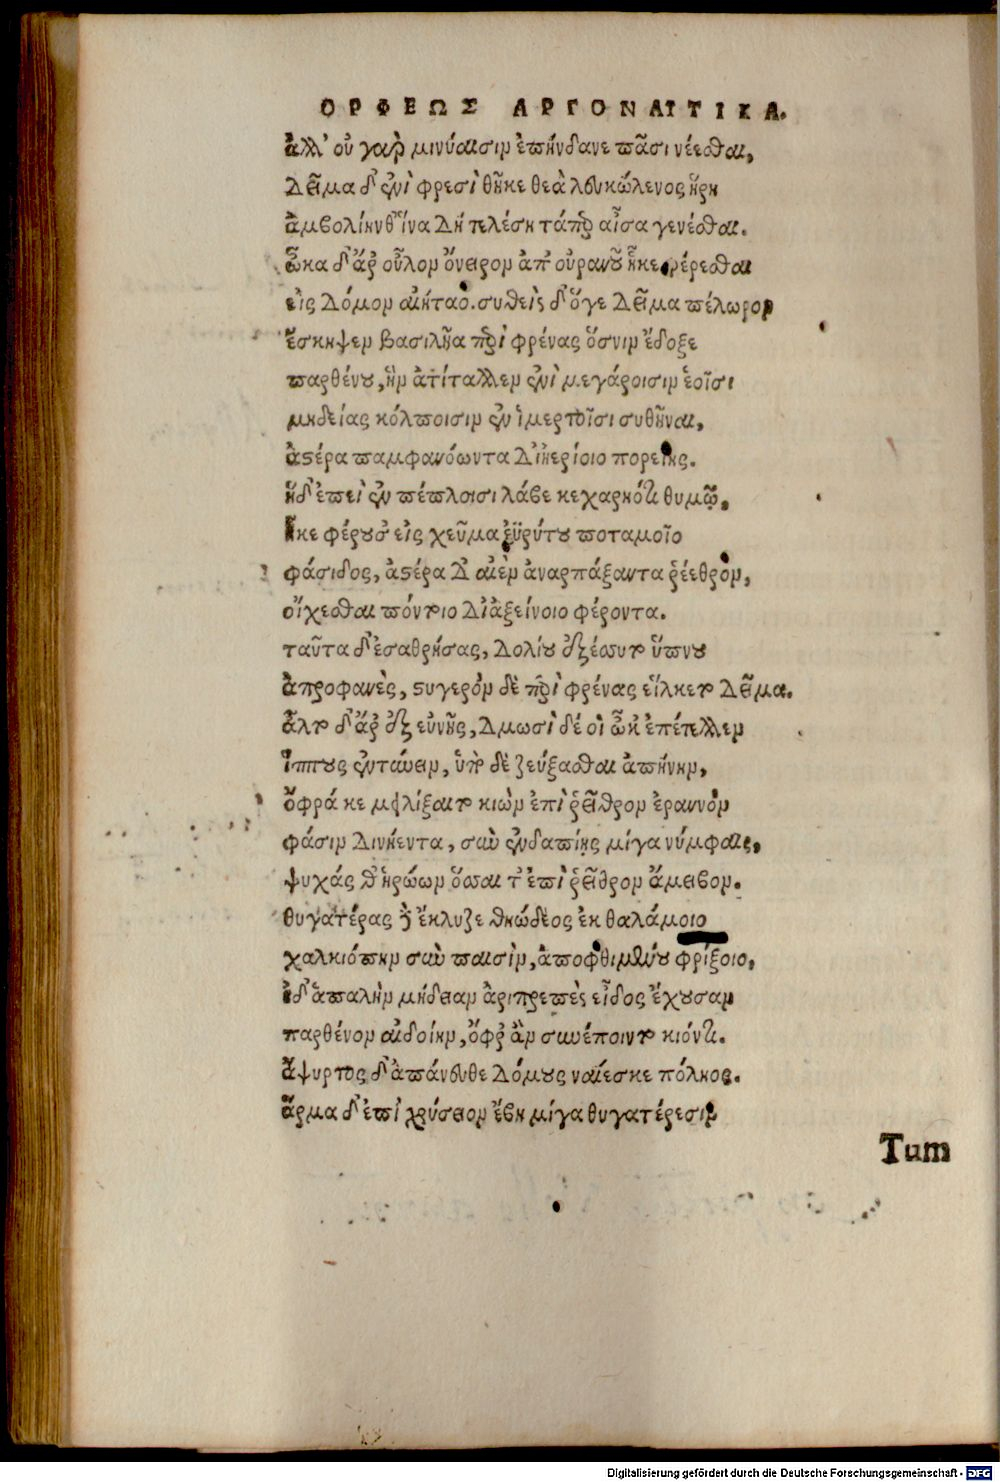 ΟΡΦΕΩΣ ΑΡΓΟΝΑΥΤΙΚΑ.
ἀλλ' οὐ γαὰρ μινύαισιν ἐπήνδανε πᾶσι νέεσθαι,
δεῖμα δ' ἐνὶ φρεσὶ θῆκε θεὰ λευκώλενος ἥρη
ἀμβολίην θ' ἵνα δὴ τελέση τάπερ αἶσα γενέσθαι.
ὦκα δ' ἄρ οὖλον ὄνειρον ἀπ' οὐρανοῦ ἧκε φέρεσθαι
εἰς δόμον αἰήταο. στυθεὶς δ' ὅγε δεῖμα πέλωρον
ἔσκηψεν βασιλῆα περὶ φρένας ὅς νιν ἔδοξε
παρθένου, ἣν ἀτίταλλεν ἐνὶ μεγάροισιν ἑοῖσι
μηδείας κόλποισιν ἐν ἱμερτοῖσι στυθῆναι,
ἀστέρα παμφανόωντα δι' ἠερίοιο πορείης.
ἣ δ' ἐπεὶ ἐν πέπλοισι λάβε κεχαρηότι θυμῷ,
ἧκε φέρουσ' εἰς χεῦμα ἐϋρύτου ποταμοῖο
φάσιδος, ἀστέρα δ' αἰὲν ἀναρπάξαντα ῥέεθρον,
οἴχεσθαι πόντοιο δι' ἀξείνοιο φέροντα.
ταῦτα δ' ἐσαθρήσας, δολίου ἐξέσσυτο ὕπνου
ἀπροφανὲς, στυγερὸν δὲ περὶ φρένας εἵλκετο δεῖμα.
ἆλτο δ' ἄρ ἐξ εὐνῆς, δμωσὶ δέ οἱ ὦκ' ἐπέτελλεν
ἵππους ἐντύνειν, ὑπὸ δὲ ζεύξασθαι ἀπήνην,
ὄφρά κε μειλίξαιτο κιὼν ἐπὶ ῥεῖθρον ἐραννὸν
φάσιν δινήεντα, σὺν ἐνδαπίης μίγα νύμφαις,
ψυχάς θ' ἡρώων ὅσσαι τ' ἐπὶ ῥεῖθρον ἄμειβον.
θυγατέρας δ' ἔκλυζε θηώδεος ἐκ θαλάμοιο
χαλκιόπην σὺν παισὶν, ἀποφθιμένου φρίξοιο,
ἰδ' ἁπαλὴν μήδειαν ἀριπρεπὲς εἶδος ἔχουσαν
παρθένον αἰδοίην, ὄφρ' ἂν συνέποιντο κιόντι.
ἄψυρτος δ' ἀπάνευθε δόμους ναίεσκε πόληος.
ἅρμα δ' ἐπὶ χρύσειον ἔβη μίγα θυγατέρεσιν
Tum
Digitalisierung gefördert durch die Deutsche Forschungsgemeinschaft - DFG